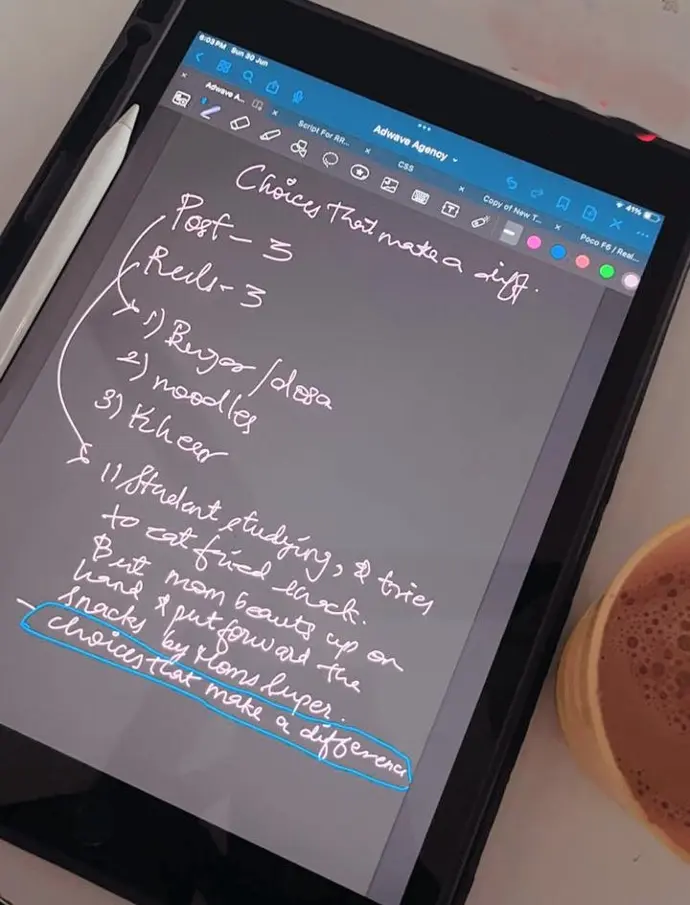 8:03 PM Sun 30 Jun
41%
Adwave Agency
Adwave A...
Script For RR...
CSS
Copy of New T...
Poco F6 / Real...
Choices That make a diff.
Post - 3
Reels - 3
1) Burger / dosa
2) noodles
3) Kheer
1) Student studying, & tries
to eat fried snack.
But mom beauts up on
hand & put forward the
snacks by Moms Super.
- choices that make a difference